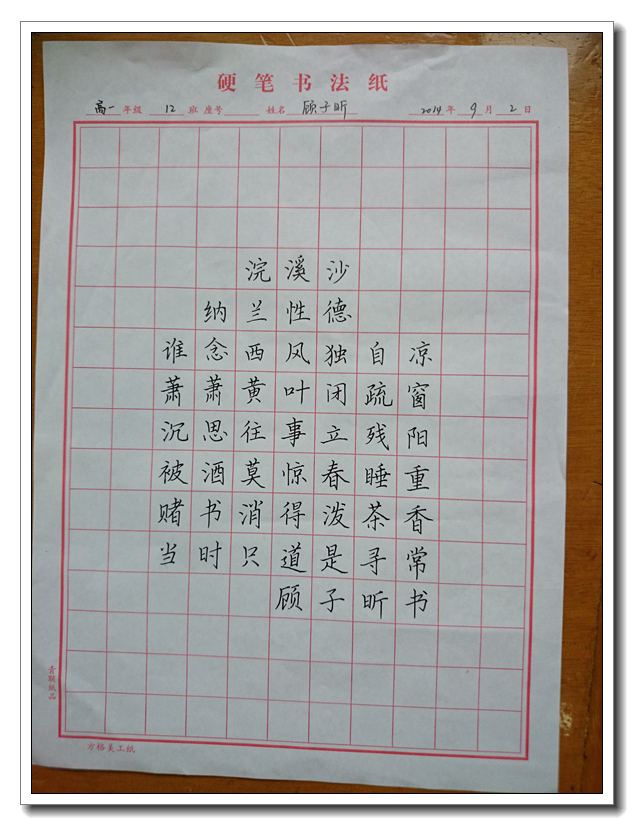 硬笔书法纸
高一年级 12 班 座号 姓名 顾子昕 2014年 9月 2日
浣溪沙
纳兰性德
谁念西风独自凉
萧萧黄叶闭疏窗
沉思往事立残阳
被酒莫惊春睡重
赌书消得泼茶香
当时只道是寻常
顾子昕书
青联纸品
方格美工纸